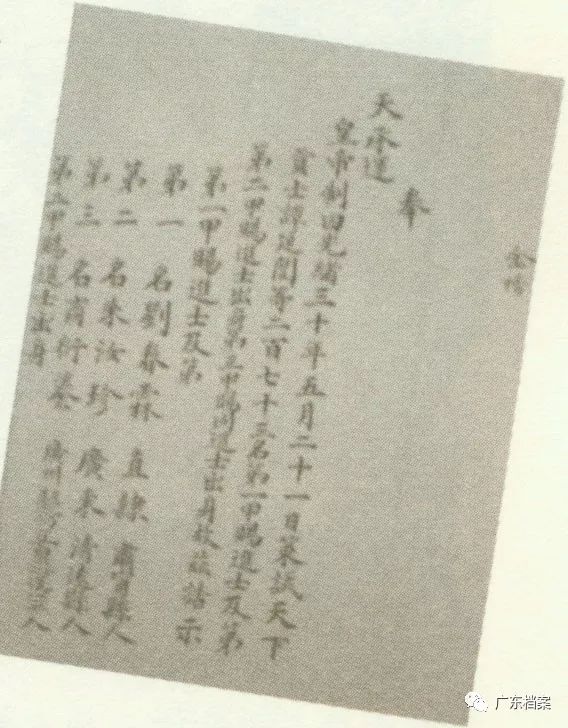 金榜
奉
天承運
皇帝制曰光緒三十年五月二十一日策試天下
貢士譚延闓等二百七十三名第一甲賜進士及第
第二甲賜進士出身第三甲賜同進士出身故茲誥示
第一甲賜進士及第
第一名劉春霖 直隸肅寧縣人
第二名朱汝珍 廣東清遠縣人
第三名商衍鎏 廣州人
第二甲賜進士出身
广东档案